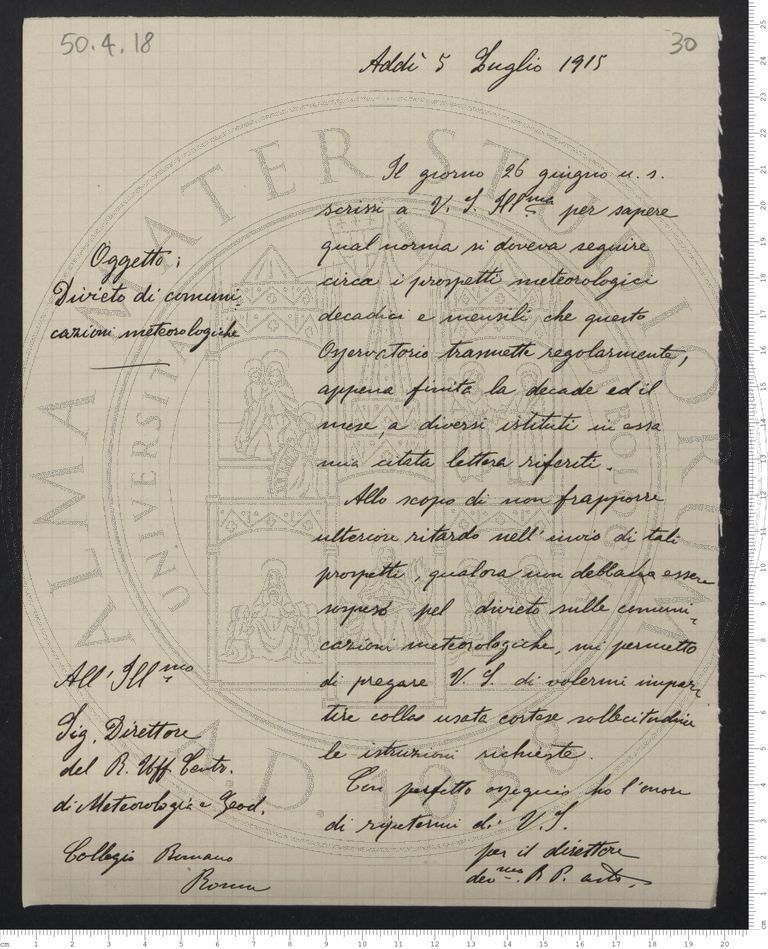 50.4.18
30
Addì 5 Luglio 1915
Il giorno 26 giugno u. s.
scrissi a V. S. Ill.ma per sapere
qual norma si doveva seguire
circa i prospetti meteorologici
decadici e mensili che questo
Osservatorio trasmette regolarmente,
appena finita la decade ed il
mese, a diversi istituti in essa
mia citata lettera riferiti.
Allo scopo di non frapporre
ulteriore ritardo nell'invio di tali
prospetti, qualora non debbano essere
sospesi pel divieto sulle comuni-
cazioni meteorologiche, mi permetto
di pregare V. S. di volermi impar-
tire colla usata cortese sollecitudine
le istruzioni richieste.
Con perfetto ossequio ho l'onore
di ripetermi di V. S.
per il direttore
dev.mo R. P.
Oggetto:
Divieto di comuni-
cazioni meteorologiche
All'Ill.mo
Sig. Direttore
del R. Uff. Centr.
di Meteorologia e Geod.
Collegio Romano
Roma
ALMA MATER STUDIORUM
UNIVERSITÀ DI BOLOGNA
A.D. 1088